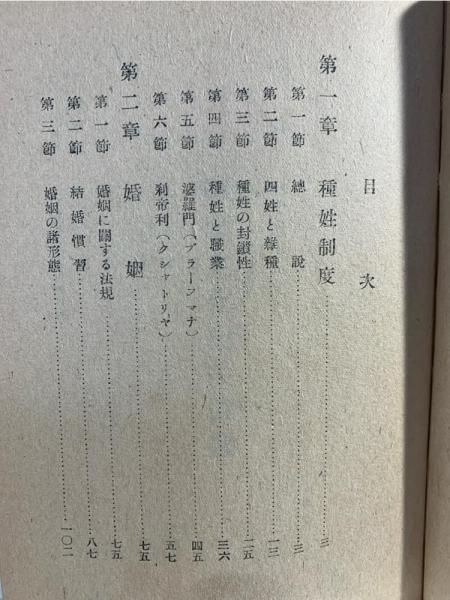 目次
第一章 種姓制度……三
第一節 總說……三
第二節 四姓と雜種……一三
第三節 種姓の封鎖性……二五
第四節 種姓と職業……三六
第五節 婆羅門(ブラーフマナ)……四五
第六節 刹帝利(クシャトリヤ)……五七
第二章 婚姻……七五
第一節 婚姻に關する法規……七五
第二節 結婚慣習……八七
第三節 婚姻の諸形態……一〇二